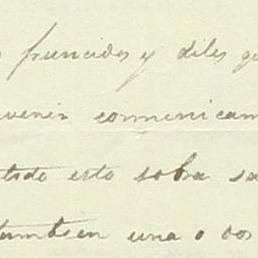 fruncidos y diles qu
venir comunicam
todo esto sobra sa
tambien una o dos